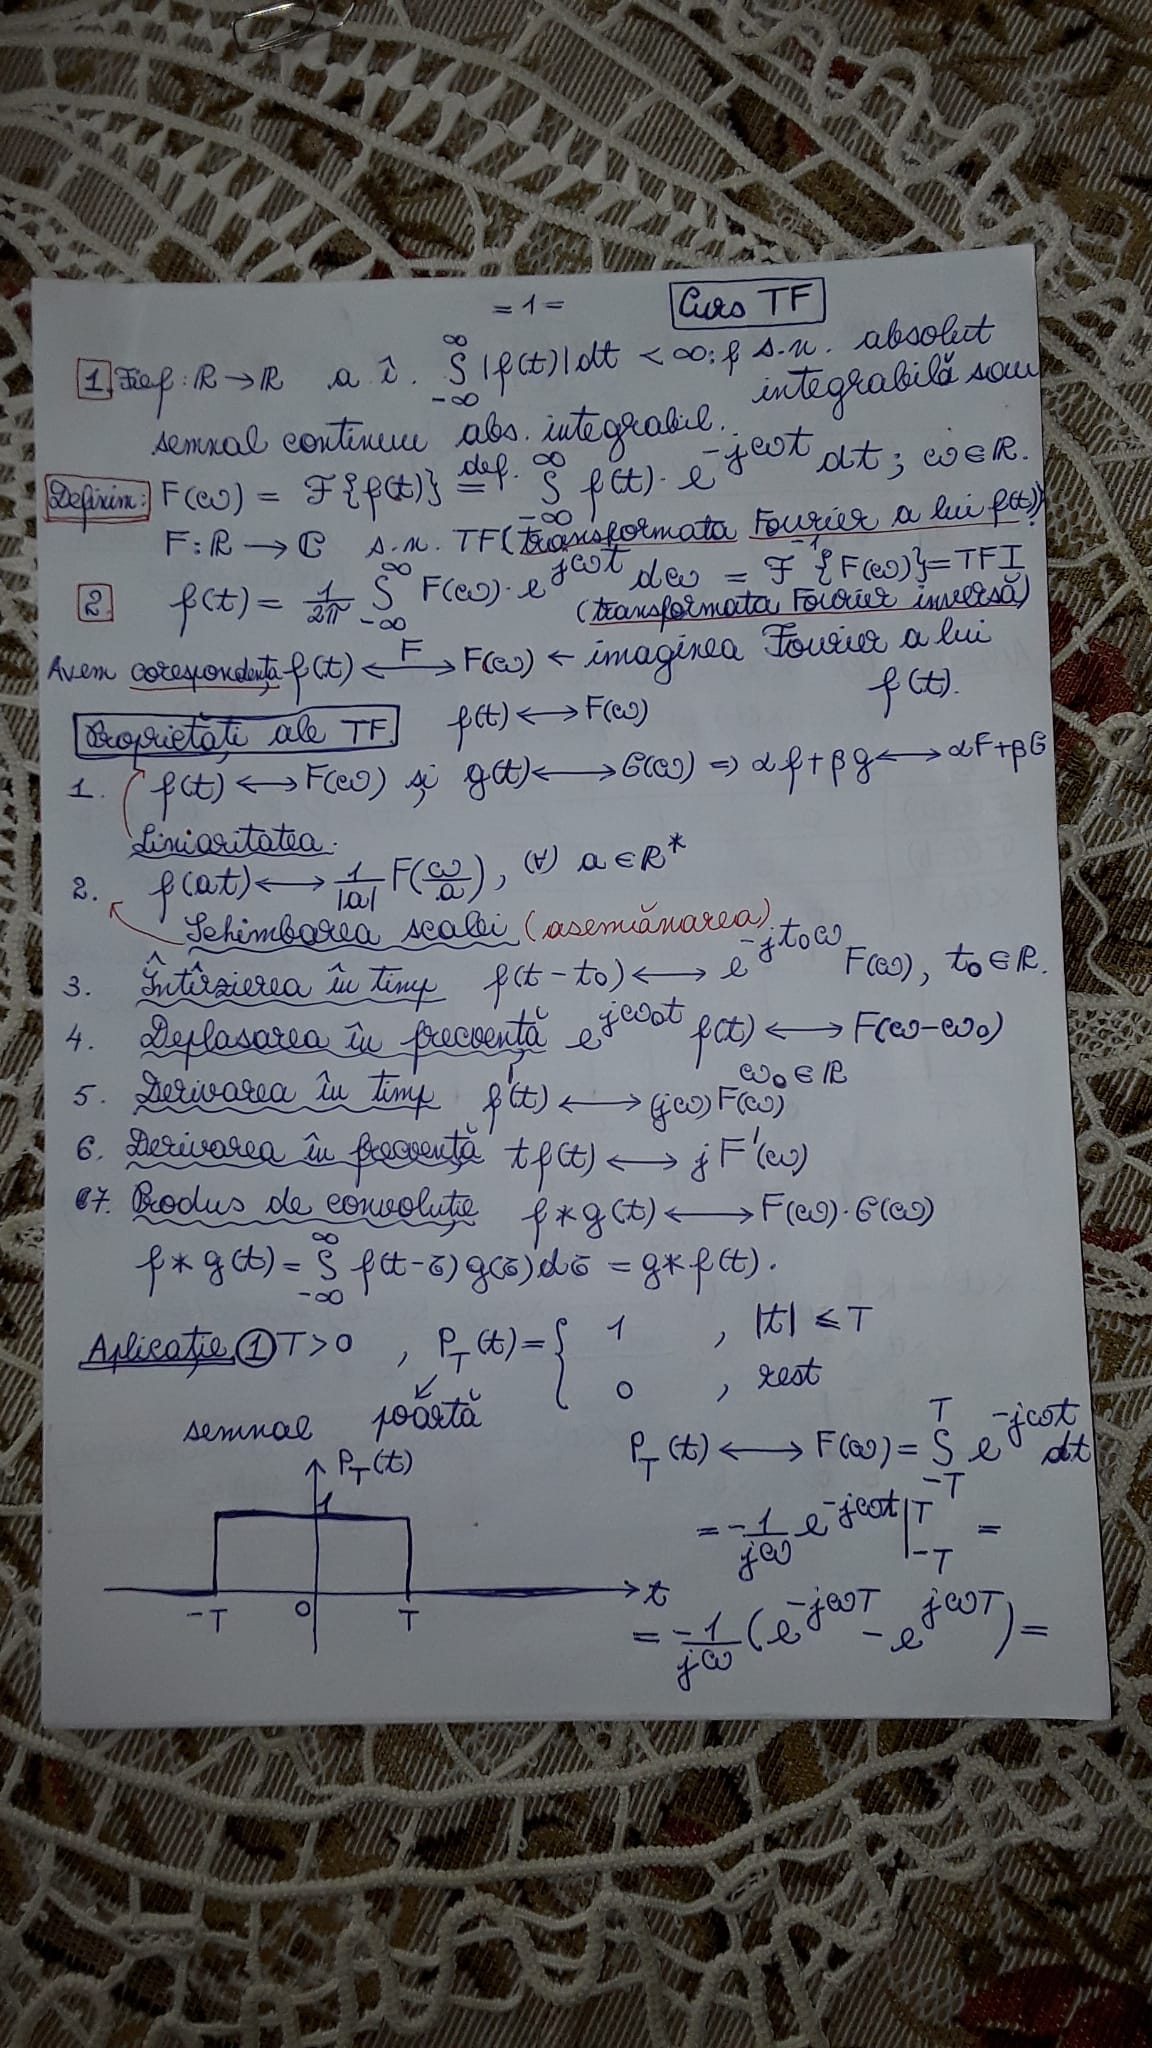 = 1 =
Curs TF
1. Fie f : ℝ → ℝ a î. ∫_{-∞}^{∞} |f(t)| dt < ∞; f s.n. absolut
integrabilă sau
semnal continuu abs. integrabil.
Definim: F(ω) = ℱ{f(t)} =^{def.} ∫_{-∞}^{∞} f(t)·e^{-jωt} dt ; ω ∈ ℝ.
F : ℝ → ℂ s.n. TF (transformata Fourier a lui f(t))
2. f(t) = 1/2π ∫_{-∞}^{∞} F(ω)·e^{jωt} dω = ℱ^{-1}{F(ω)} = TFI
(transformata Fourier inversă)
Avem corespondența f(t) ⟷^{F} F(ω) ← imaginea Fourier a lui
f(t).
Proprietăți ale TF. f(t) ⟷ F(ω)
1. f(t) ⟷ F(ω) și g(t) ⟷ G(ω) ⇒ αf + βg ⟷ αF + βG
Liniaritatea.
2. f(at) ⟷ 1/|a| F(ω/a), (∀) a ∈ ℝ*
Schimbarea scalei (asemănarea)
3. Întîrzierea în timp f(t - t₀) ⟷ e^{-jt₀ω} F(ω), t₀ ∈ ℝ.
4. Deplasarea în frecvență e^{jω₀t} f(t) ⟷ F(ω - ω₀)
ω₀ ∈ ℝ
5. Derivarea în timp f'(t) ⟷ (jω) F(ω)
6. Derivarea în frecvență t f(t) ⟷ j F'(ω)
7. Produs de convoluție f * g(t) ⟷ F(ω)·G(ω)
f * g(t) = ∫_{-∞}^{∞} f(t - τ) g(τ) dτ = g * f(t).
Aplicație 1 T > 0 , P_T(t) = { 1 , |t| ⩽ T
0 , rest
semnal poartă
P_T(t) ⟷ F(ω) = ∫_{-T}^{T} e^{-jωt} dt
P_T(t)
1
= -1/jω e^{-jωt} |_{-T}^{T} =
-T 0 T t
= -1/jω (e^{-jωT} - e^{jωT}) =